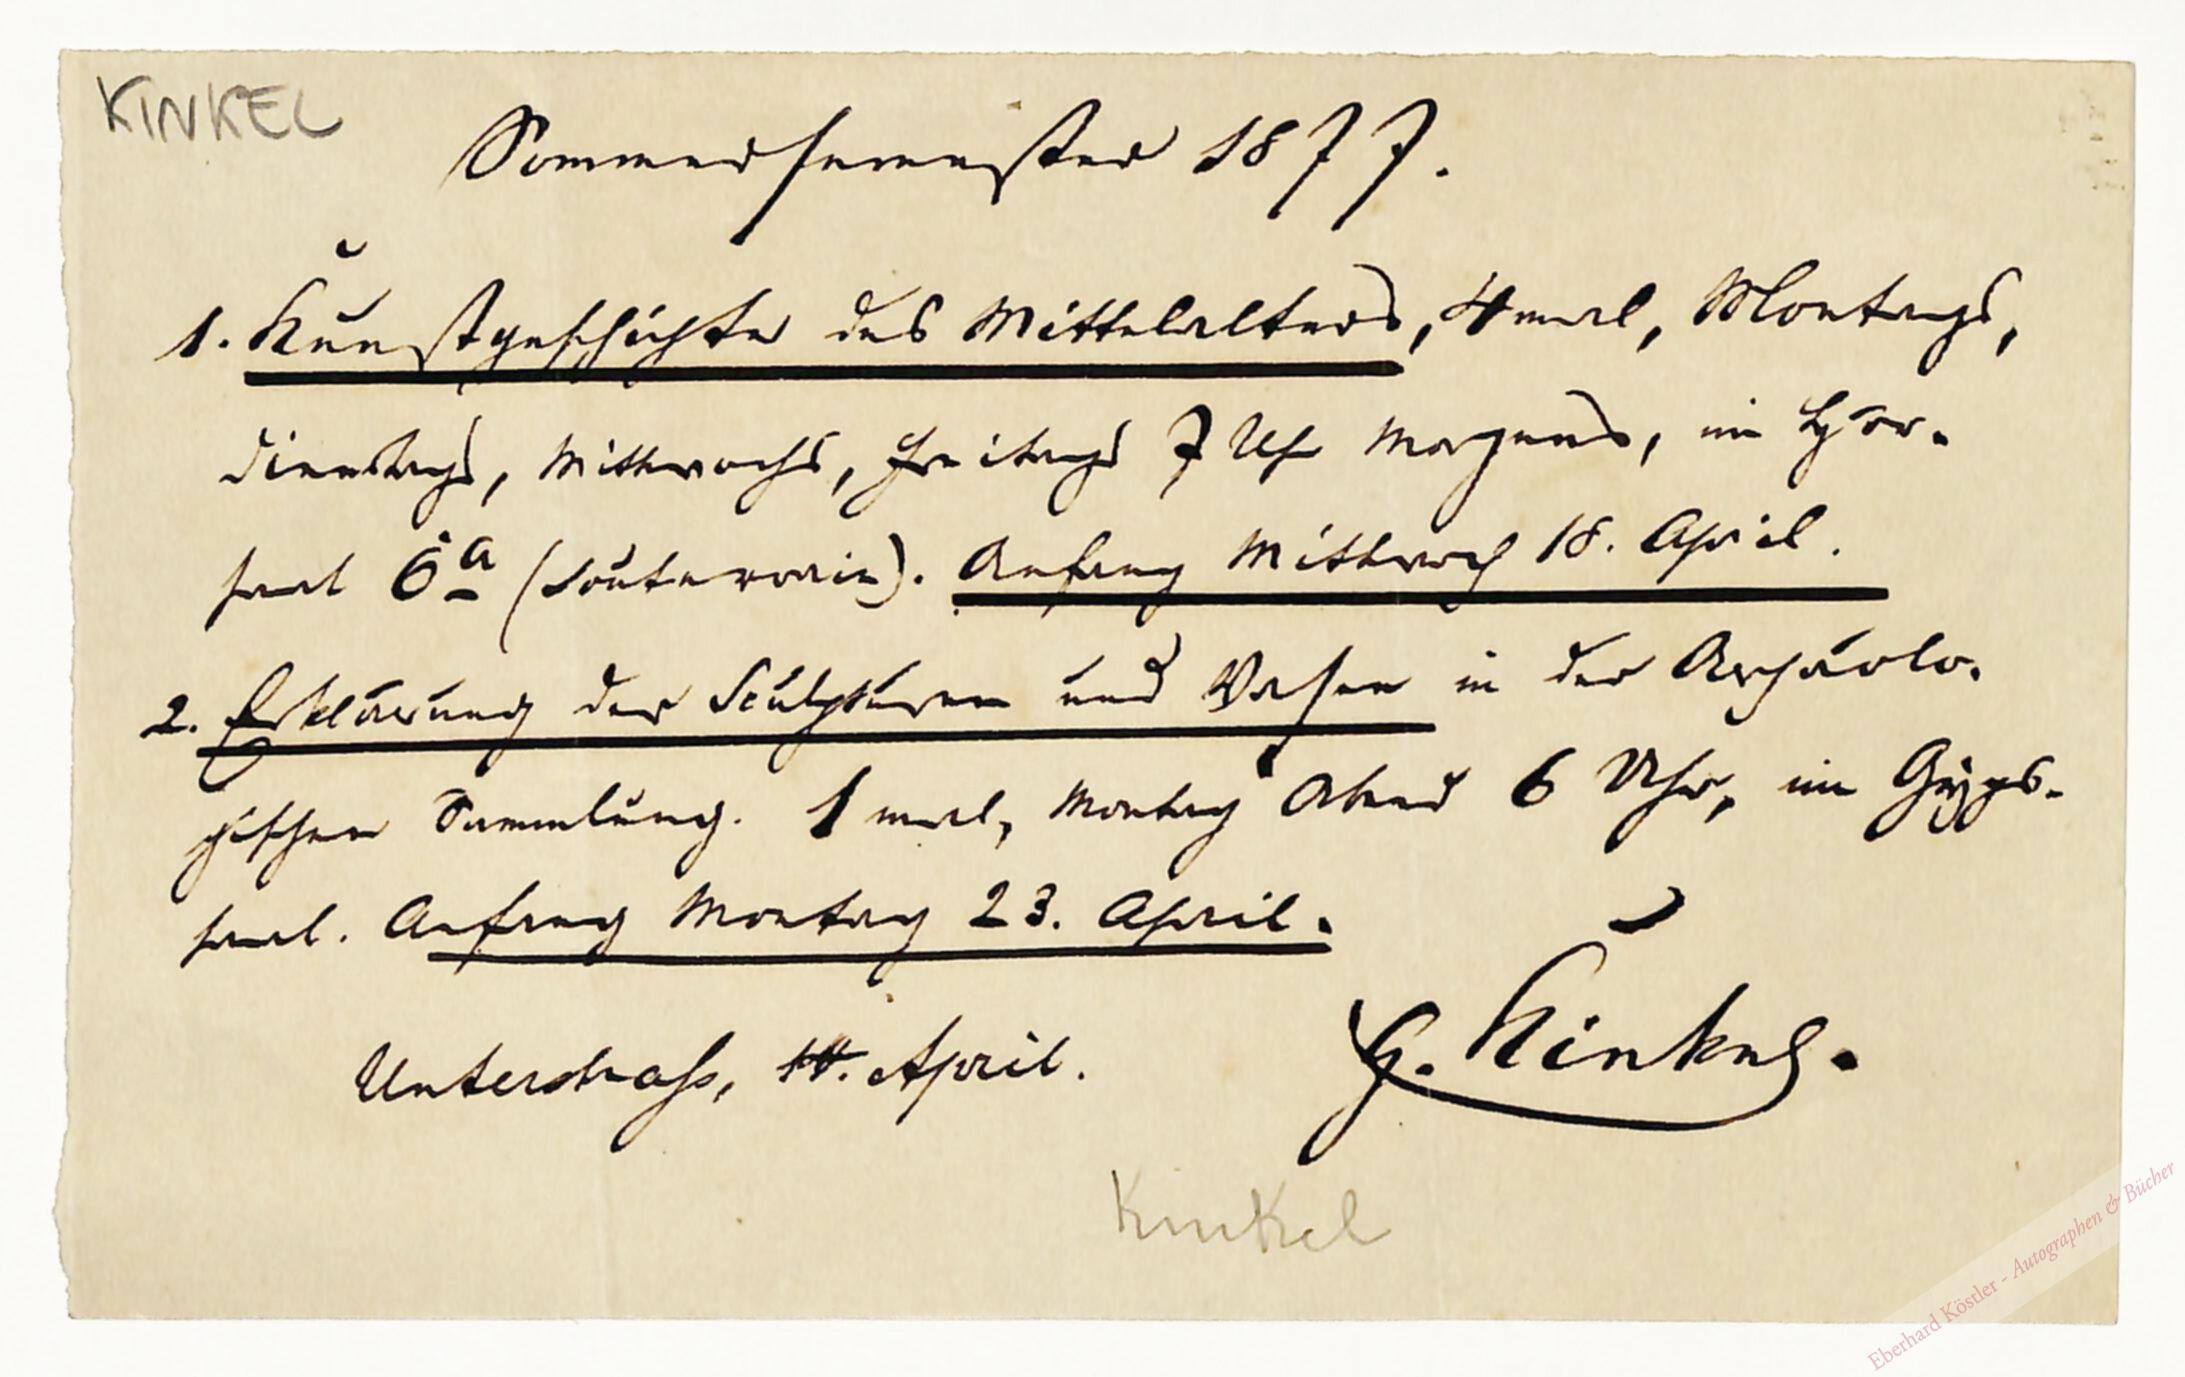 KINKEL
Sommersemester 1877.
1. Kunstgeschichte des Mittelalters, 4mal, Montags,
Dienstags, Mittwochs, Freitags 7 Uhr Morgens, im Hör-
saal 6a (Souterrain). Anfang Mittwoch 18. April.
2. Erklärung der Sculpturen und Vasen in der Archäolo-
gischen Sammlung. 1 mal, Montag Abend 6 Uhr, im Gyps-
saal. Anfang Montag 23. April.
Unterstrass, April.
G. Kinkel.
Kinkel
Eberhard Köstler - Autographen & Bücher